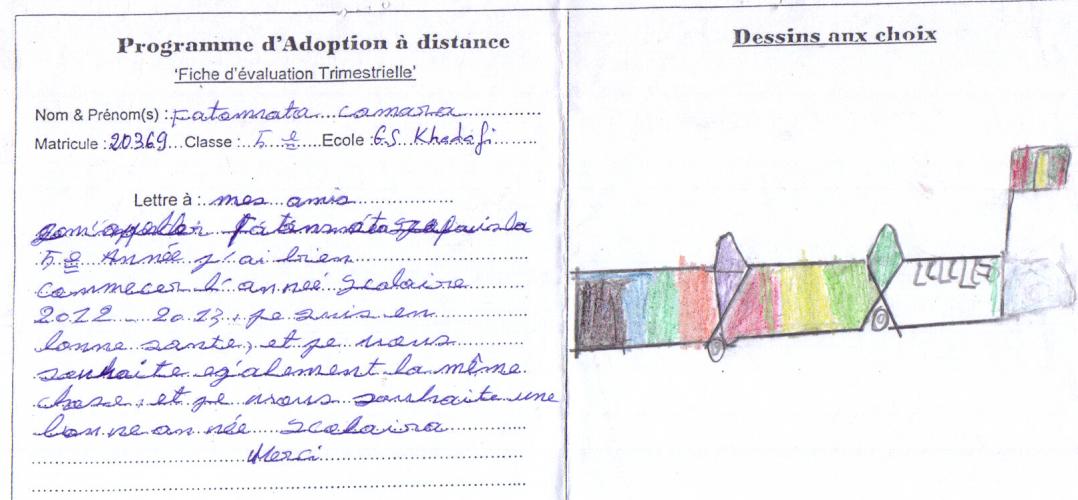 Programme d'Adoption à distance
'Fiche d'évaluation Trimestrielle'
Nom & Prénom(s) : Fatomata camara
Matricule : 20369 Classie : 5 e Ecole : G.S Khadafi
Lettre à : mes amis
5 e Année j'ai bien
commecer l'année Scolaire
2012 - 2013, je suis en
bonne sante, et je vous
souhaite également la même
chose, et je vous souhaite une
bonne année Scolaira
Merci
Dessins aux choix